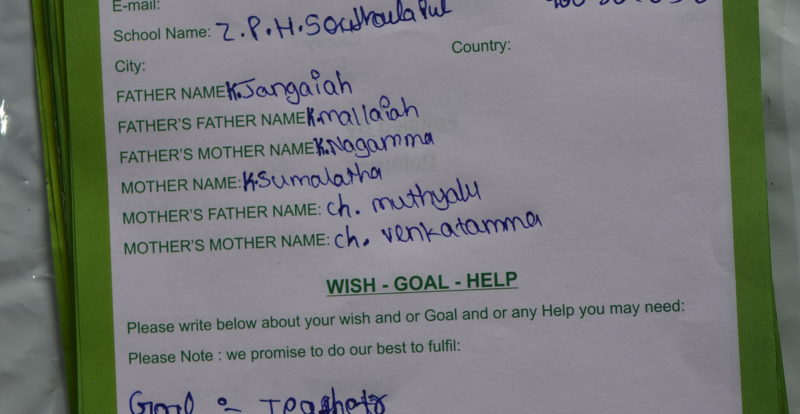 E-mail:
School Name: Z.P.H.S
Country:
City:
FATHER NAME K.Jangaiah
FATHER'S FATHER NAME K.mallaiah
FATHER'S MOTHER NAME K.Nagamma
MOTHER NAME: K.Sumalatha
MOTHER'S FATHER NAME: ch. muthyalu
MOTHER'S MOTHER NAME: ch. venkatamma
WISH - GOAL - HELP
Please write below about your wish and or Goal and or any Help you may need:
Please Note : we promise to do our best to fulfil:
Goal :-